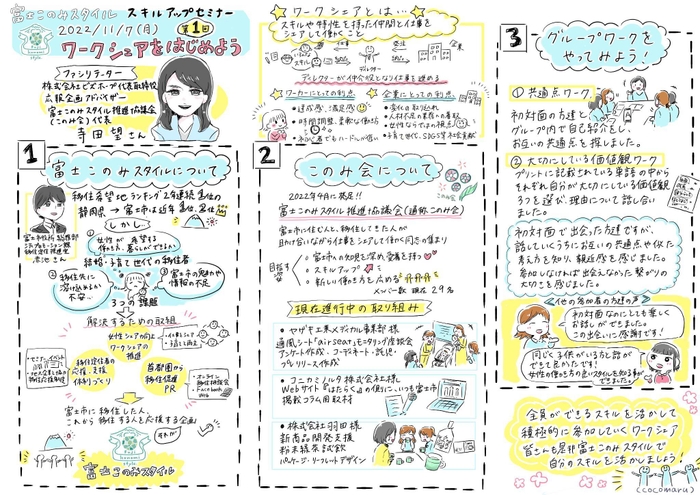 富士このみスタイル スキルアップセミナー
2022/11/7(月) 第1回
ワークシェアをはじめよう
ファシリテーター
株式会社ビズホープ代表取締役
広報企画アドバイザー
富士このみスタイル推進協議会
(このみ会)代表
寺田望さん
ワークシェアとは…
スキルや特性を持った仲間と仕事を
シェアして働くこと
企業
ディレクター
ディレクターが仲介役となり仕事を進める
ワーカーにとっての利点
・達成感、満足感
・時間調整、柔軟な働き方
企業にとっての利点
・人材不足の業務への着手
・女性ならではの視点
1 富士このみスタイルについて
移住希望地ランキング2年連続1位の
静岡県→富士市は近年
しかし
①女性が希望する
働き方、暮らしができない
結婚・子育て世代の移住者
②移住先に
溶け込めるか
不安…
③富士市の魅力や
情報の不足
3つの課題
解決するための取組
女性シェアの向上
ワークシェアの
推進
移住定住者の
応援、支援
体制づくり
首都圏から
移住促進
PR
・オンライン
移住相談会
Facebook
Web
富士市に移住した人、
これから移住する人を応援する企画
それが
富士このみスタイル
2 このみ会について
2022年4月に発足!!
富士このみスタイル推進協議会(通称このみ会)
富士市に住む人と、移住してきた人が
助け合いながら仕事をシェアして働く同志の集まり
目指す
○富士市の知見を深め愛着を持つ
○スキルアップ
○新しい働き方を広める
メンバー数 現在29名
現在進行中の取り組み
・ヤザキ工業メディカル事業部様
通風シート「airseat」モニタリング座談会
アンケート作成・コーディネート・託児・
プレリリース作成
・コニカミノルタ株式会社様
Webサイト『はたらく』の便りに、いつも富士市
掲載コラム用取材
・株式会社羽田様
新商品開発支援
粉末緑茶試飲
パッケージ・リーフレットデザイン
3 グループワークを
やってみよう!
①共通点ワーク
初対面の方達と
グループ内で自己紹介をし、
お互いの共通点を探しました。
②大切にしている価値観ワーク
プリントに記載されている単語の中から
それぞれ自分が大切にしている価値観
3つを選び、理由について話し合い
ました。
初対面で出会った方達ですが、
話していくうちにお互いの共通点や似た
考え方を知り、親近感を感じました。
参加しなければ出会えなかった繋がりの
大切さを感じました。
他の参加者の方達の声
初対面なのにとても楽しく
お話しができました。
この出会いに感謝です!
同じく子供がいる方と話が
できて良かったです!
女性の働き方の良いスタイルを知る事が
できました。
全員ができるスキルを活かして
積極的に参加していくワークシェア
皆さんも是非富士このみスタイルで
自分のスキルを活かしましょう!
(cocomaru)